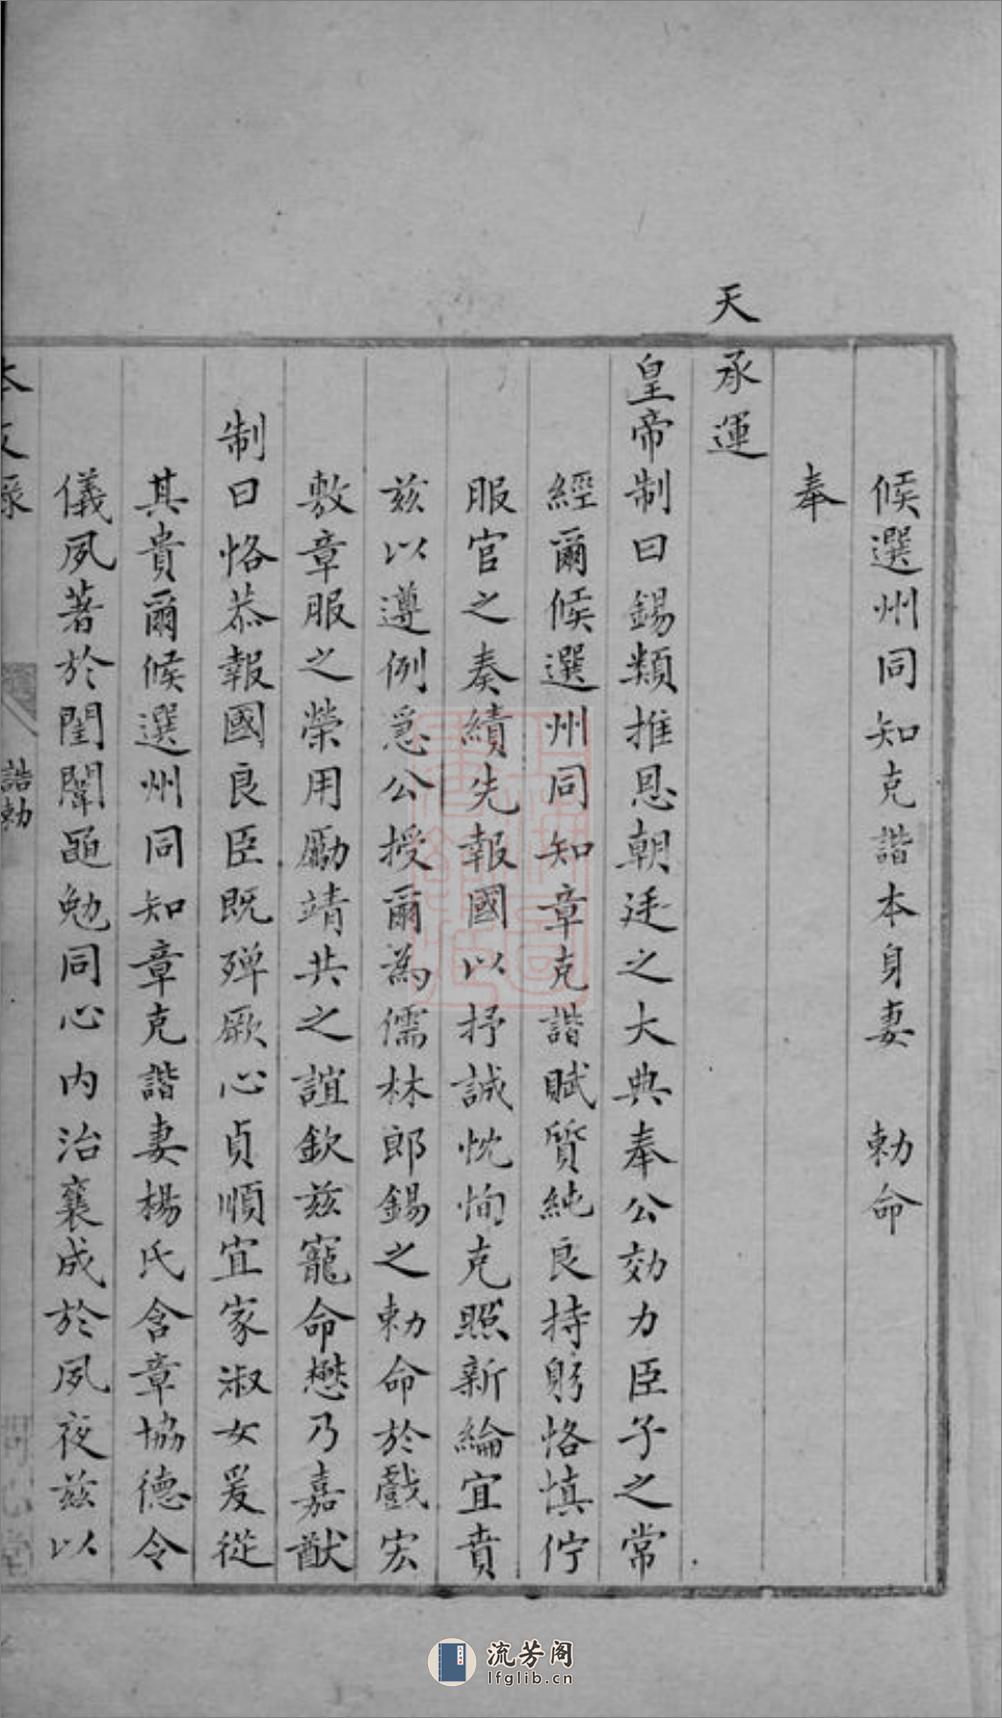 候選州同知克諧本身妻　勅命
奉
天承運
皇帝制曰錫類推恩朝廷之大典奉公効力臣子之常
經爾候選州同知章克諧賦質純良持躬恪慎佇
服官之奏績先報國以抒誠忱恂克照新綸宜賁
茲以遵例急公授爾為儒林郎錫之勅命於戲宏
敷章服之榮用勵靖共之誼欽茲寵命懋乃嘉猷
制曰恪恭報國良臣既殫厥心貞順宜家淑女爰從
其貴爾候選州同知章克諧妻楊氏含章協德令
儀夙著於閨闈黽勉同心内治襄成於夙夜茲以
誥勅
流芳阁
lfglib.cn